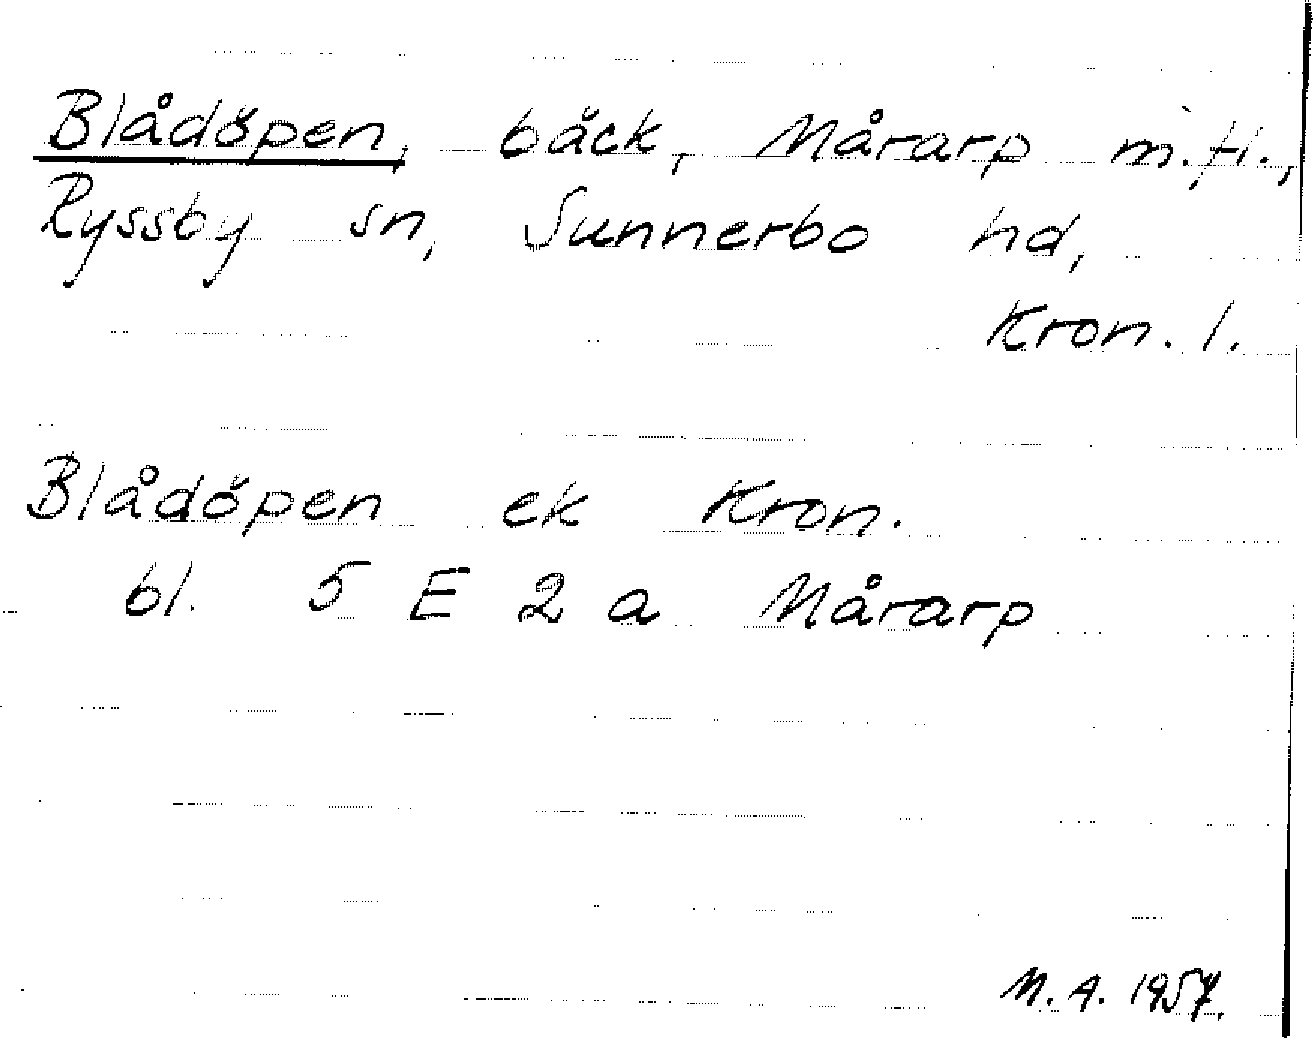 Blådöpen, bäck, Mårarp m.fl.,
Ryssby sn, Sunnerbo hd,
Kron. l.
Blådöpen ek Kron.
bl. 5 E 2 a Mårarp
M.A. 1957.